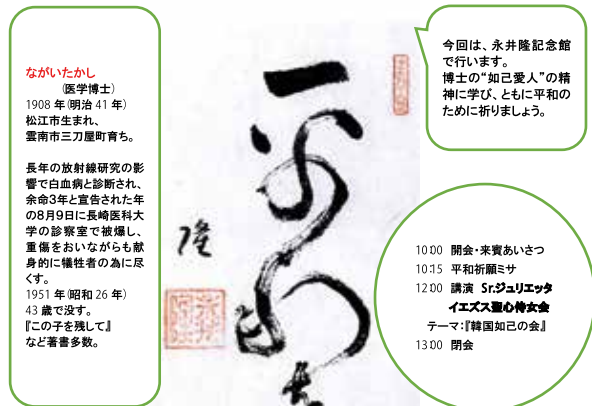 ながいたかし
(医学博士)
1908年(明治41年)
松江市生まれ、
雲南市三刀屋町育ち。
長年の放射線研究の影
響で白血病と診断され、
余命3年と宣告された年
の8月9日に長崎医科大
学の診察室で被爆し、
重傷をおいながらも献
身的に犠牲者の為に尽
くす。
1951年(昭和26年)
43歳で没す。
『この子を残して』
など著書多数。
平
隆
今回は、永井隆記念館
で行います。
博士の“如己愛人”の精
神に学び、ともに平和の
ために祈りましょう。
10:00 開会・来賓あいさつ
10:15 平和祈願ミサ
12:00 講演 Sr.ジュリエッタ
イエズス聖心侍女会
テーマ:『韓国如己の会』
13:00 閉会